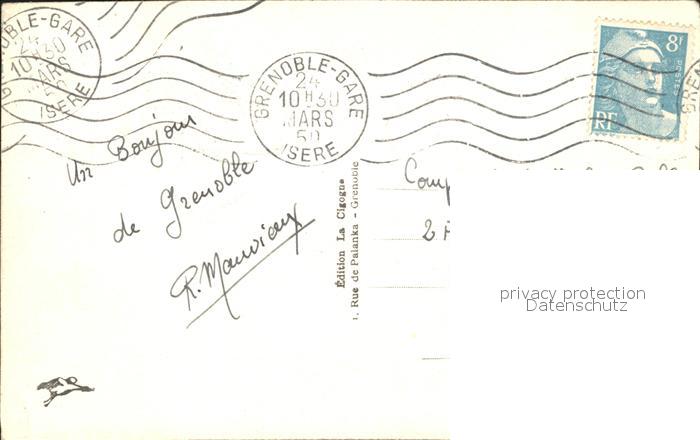 OBLE-GARE
24
10H30
MARS
ISERE
GRENOBLE-GARE
24
10H30
MARS
50
ISERE
8F
POSTES
RF
Un Bonjour
de Grenoble
Édition La Cigogne
1, Rue de Palanka - Grenoble
2
privacy protection
Datenschutz